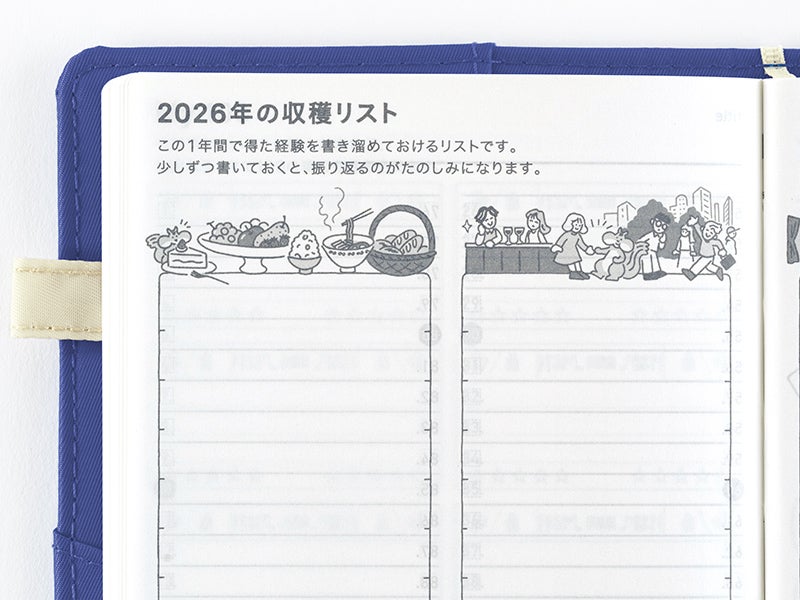 2026年の収穫リスト
この1年間で得た経験を書き溜めておけるリストです。
少しずつ書いておくと、振り返るのがたのしみになります。